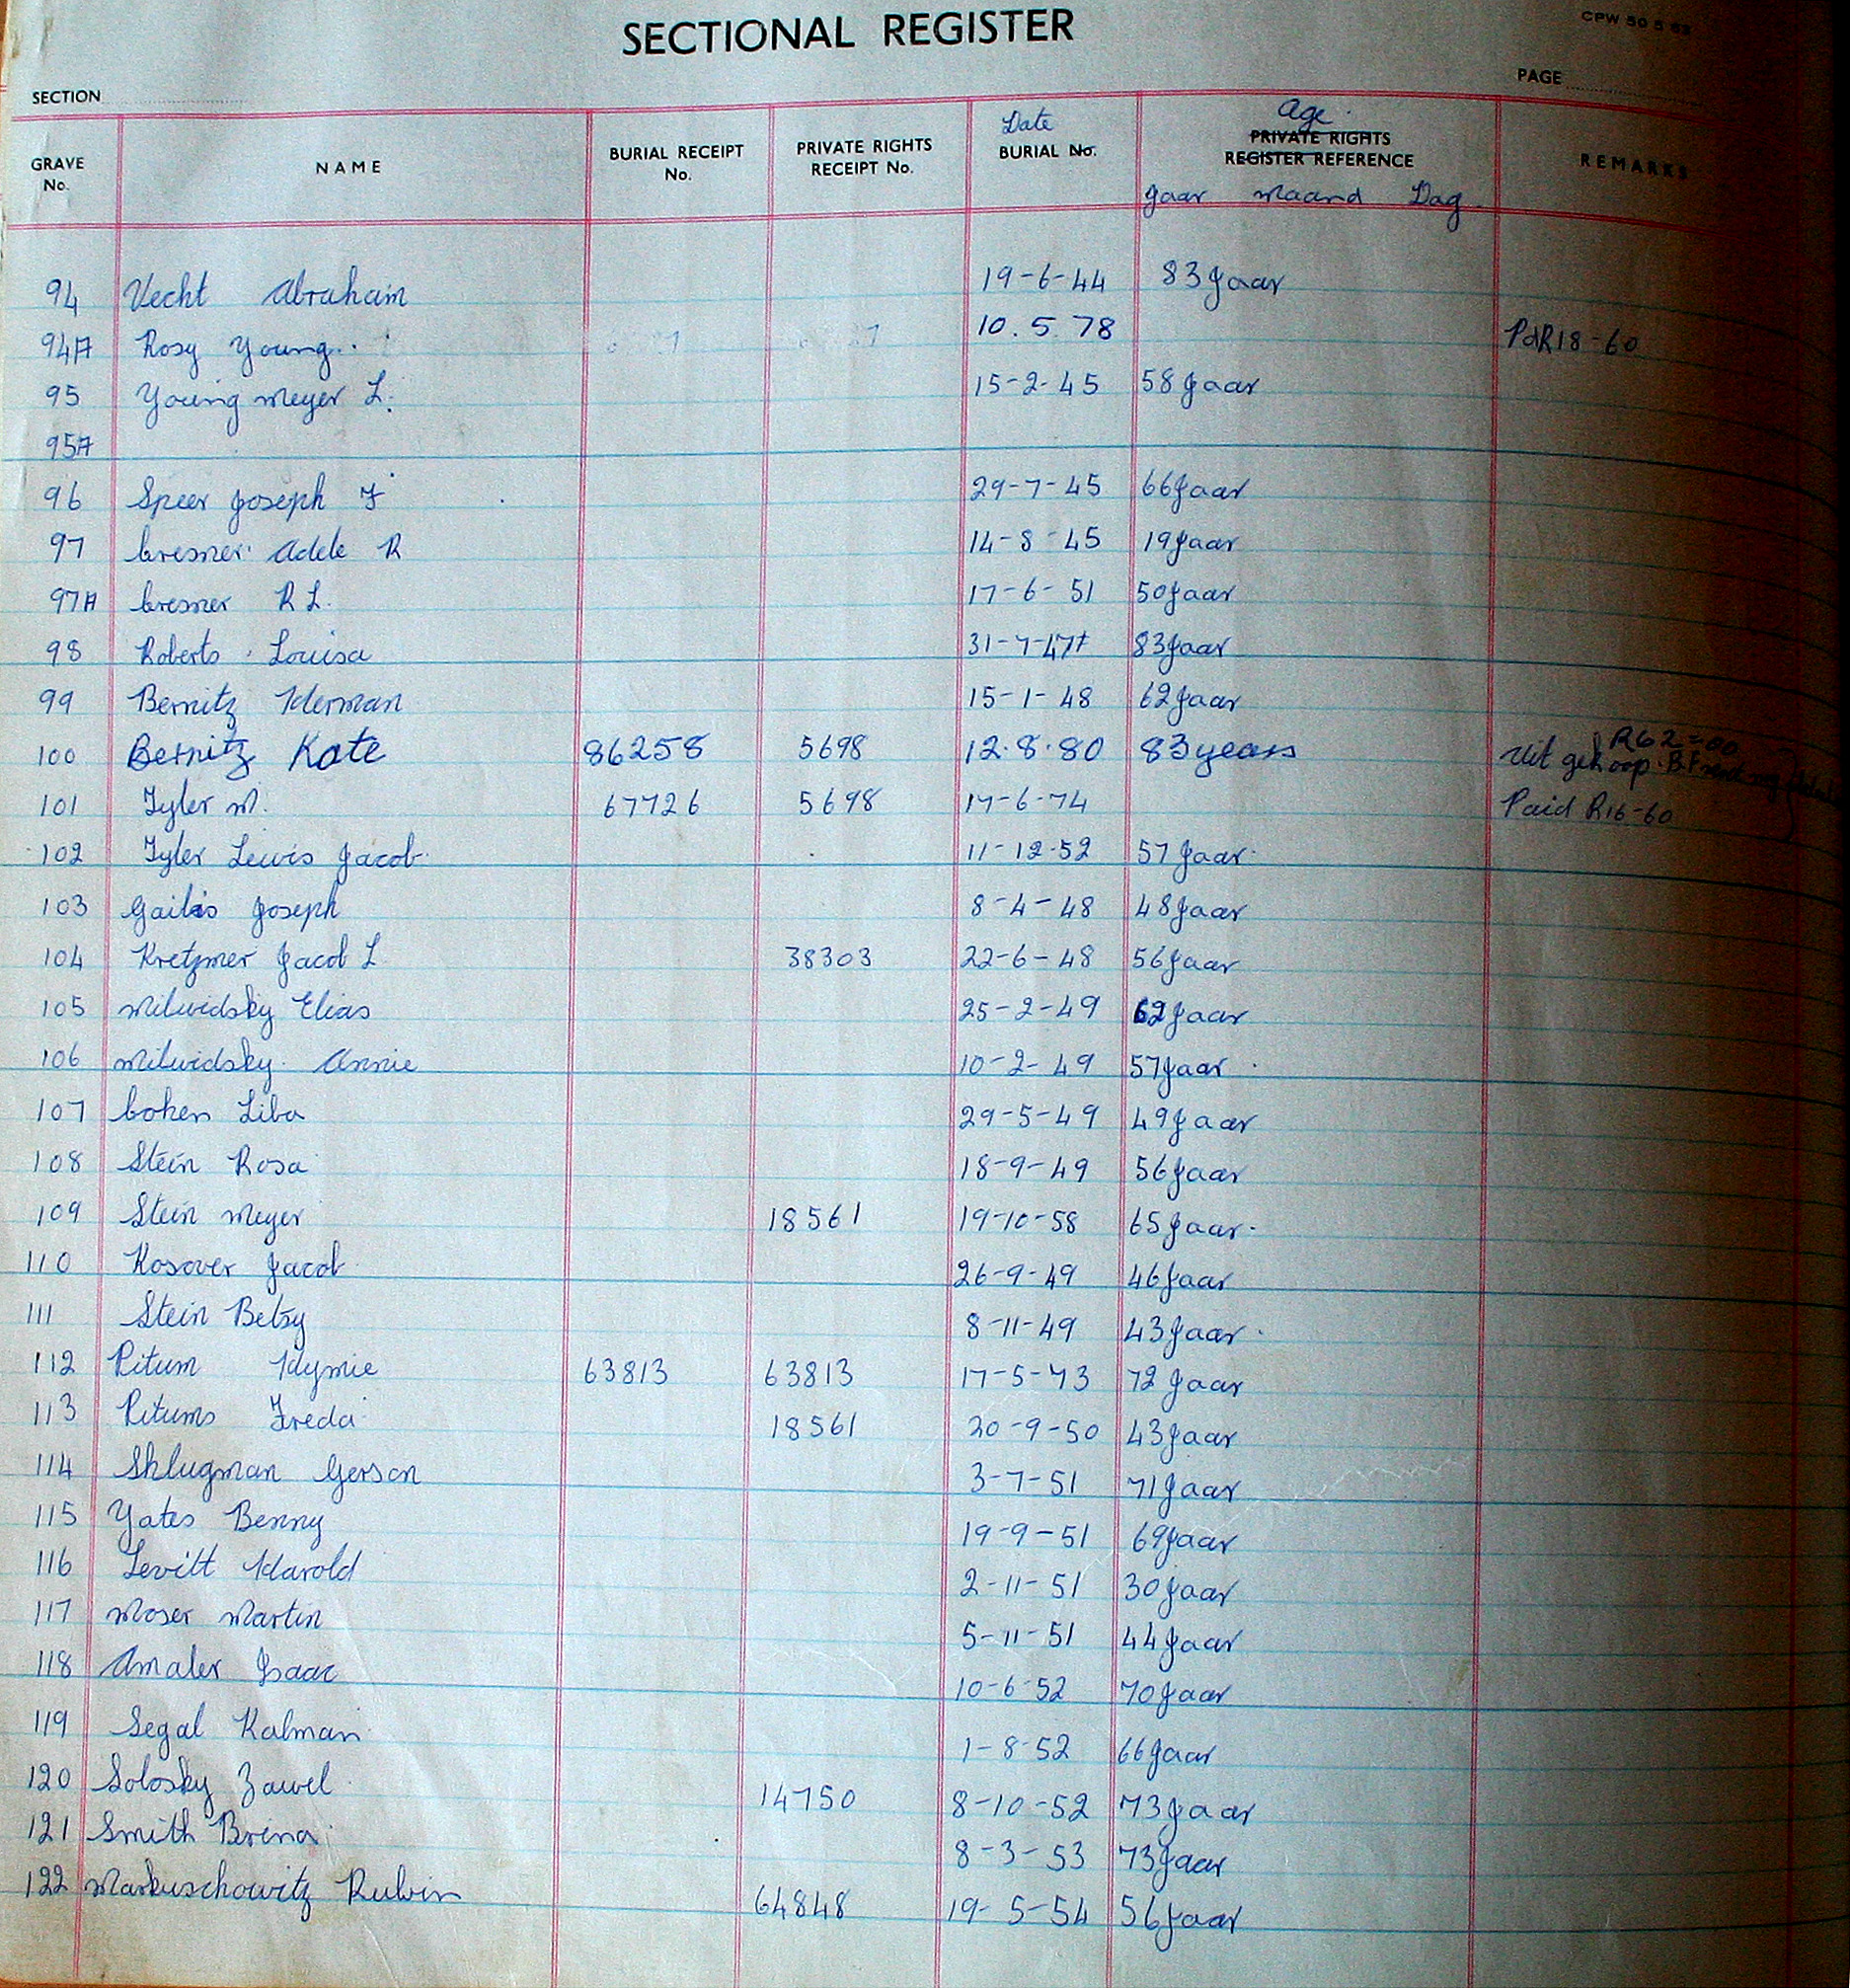 SECTIONAL REGISTER
CPW 50 5 63
SECTION
PAGE
GRAVE No. NAME BURIAL RECEIPT No. PRIVATE RIGHTS RECEIPT No. Date BURIAL No. Age PRIVATE RIGHTS REGISTER REFERENCE REMARKS
Jaar Maand Dag
94 Vecht Abraham 19-6-44 83 Jaar
94A Rosy Young 10.5.78 PdR18-60
95 Young Meyer L. 15-2-45 58 Jaar
95A
96 Speer Joseph F 29-7-45 66 Jaar
97 Cresner Adele R 14-8-45 19 Jaar
97A Cresner R L. 17-6-51 50 Jaar
98 Roberts Louisa 31-7-47 83 Jaar
99 Bernitz Herman 15-1-48 62 Jaar
100 Bernitz Kate 86258 5698 12.8.80 83 years Uit gekoop R62=00
101 Tyler M. 67726 5698 17-6-74 Paid R16-60
102 Tyler Lewis Jacob 11-12-52 57 Jaar
103 Gailis Joseph 8-4-48 48 Jaar
104 Kretzmer Jacob L 38303 22-6-48 56 Jaar
105 Milwidsky Elias 25-2-49 62 Jaar
106 Milwidsky Annie 10-2-49 57 Jaar
107 Cohen Liba 29-5-49 49 Jaar
108 Stein Rosa 18-9-49 56 Jaar
109 Stein Meyer 18561 19-10-58 65 Jaar
110 Kosover Jacob 26-9-49 46 Jaar
111 Stein Betsy 8-11-49 43 Jaar
112 Pitum Hymie 63813 63813 17-5-73 72 Jaar
113 Pitums Freda 18561 20-9-50 43 Jaar
114 Shlugman Gerson 3-7-51 71 Jaar
115 Yates Benny 19-9-51 69 Jaar
116 Levitt Harold 2-11-51 30 Jaar
117 Moser Martin 5-11-51 44 Jaar
118 Amaler Isaac 10-6-52 70 Jaar
119 Segal Kalman 1-8-52 66 Jaar
120 Solosky Zawel 14750 8-10-52 73 Jaar
121 Smith Brena 8-3-53 73 Jaar
122 Markuschowitz Rubin 64848 19-5-54 56 Jaar